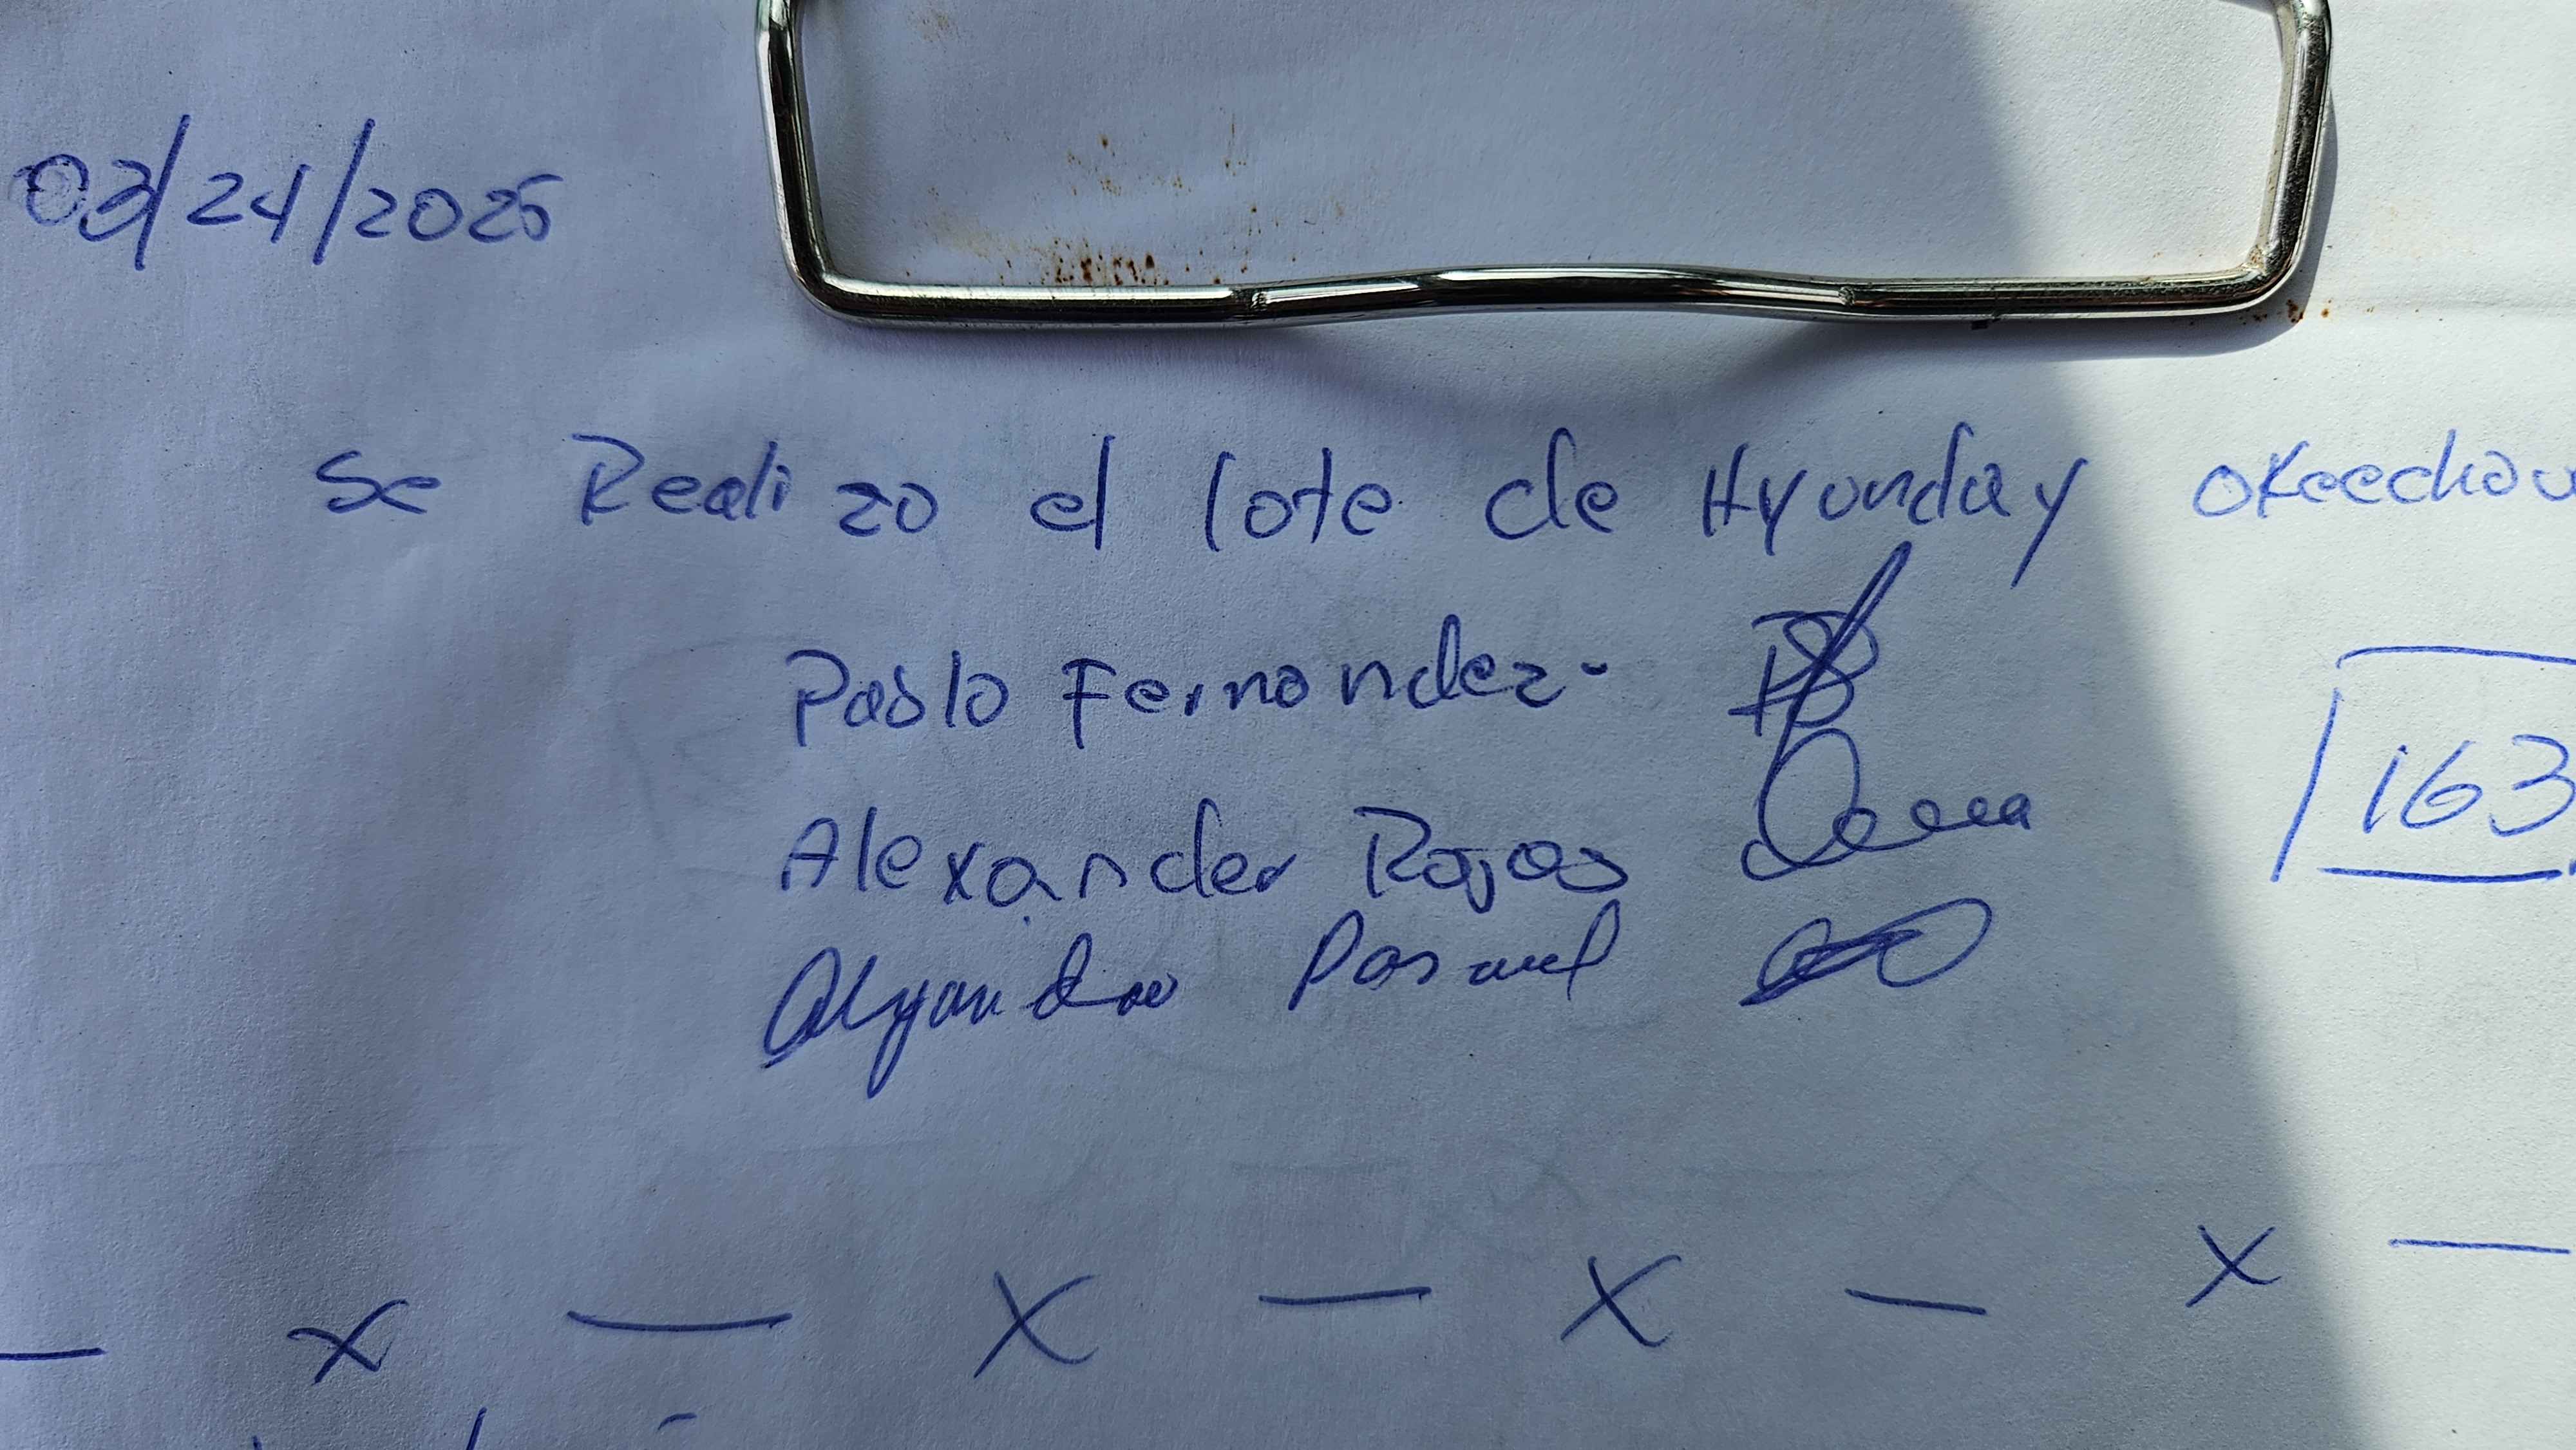 03/24/2025
Se Realizo el lote de Hyunday okeechou
Pablo Fernandez-
163
Alexander Rojas
Alejandro
x — x — x — x —